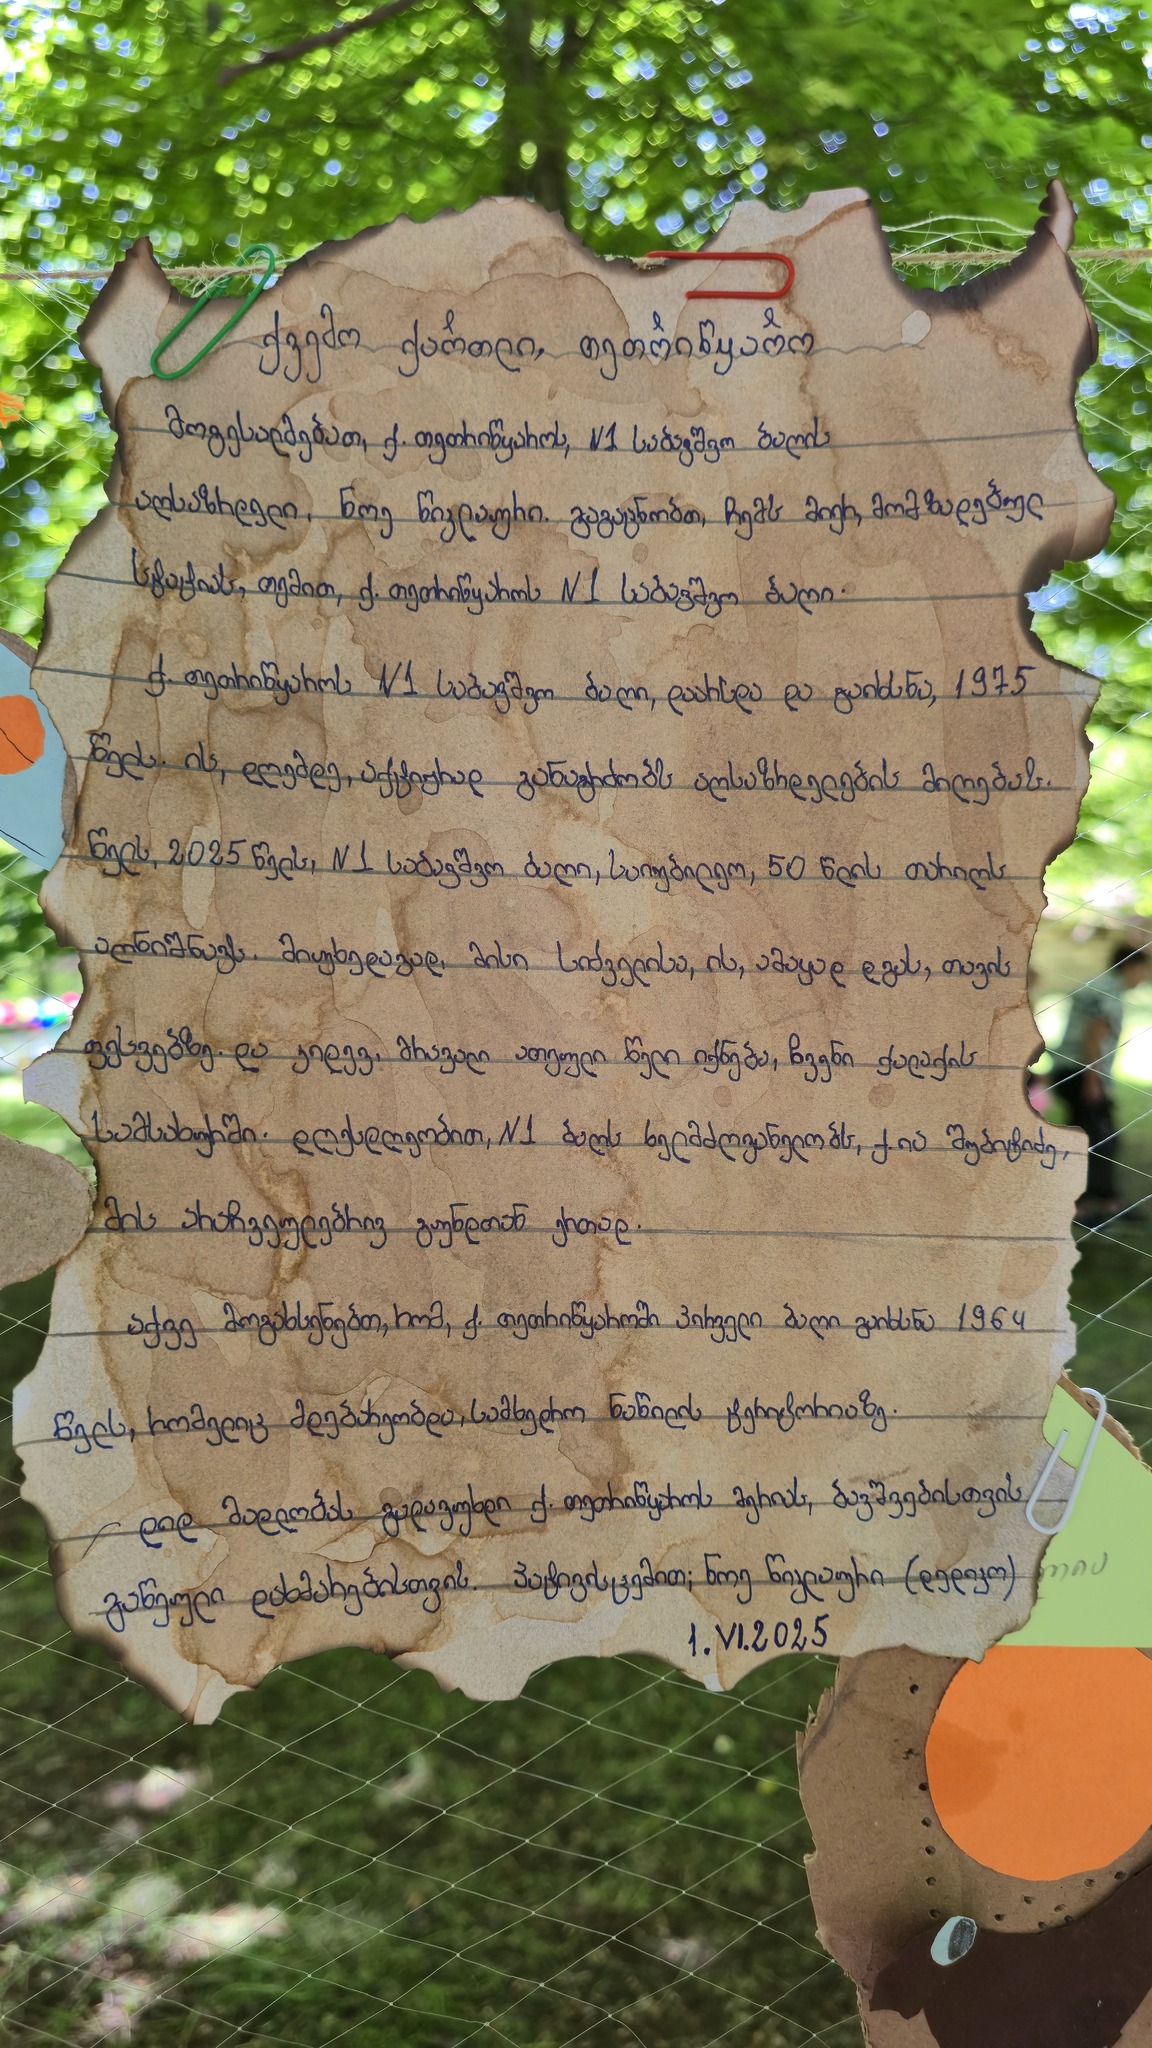 ქვემო ქართლი, თეთრიწყარო
მოგესალმებათ, ქ. თეთრიწყაროს, N1 საბავშვო ბაღის
აღსაზრდელი, ნოე წიკლაური. გაგაცნობთ, ჩემს მიერ, მომზადებულ
სტატიას, თემით, ქ. თეთრიწყაროს N1 საბავშვო ბაღი.
ქ. თეთრიწყაროს N1 საბავშვო ბაღი, დაარსდა და გაიხსნა, 1975
წელს. ის, დღემდე, აქტიურად განაგრძობს აღსაზრდელების მიღებას.
წელს, 2025 წელს, N1 საბავშვო ბაღი, საიუბილეო, 50 წლის თარიღს
აღნიშნავს. მიუხედავად, მისი სიძველისა, ის, ამაყად დგას, თავის
ფესვებზე. და კიდევ, მრავალი ათეული წელი იქნება, ჩვენი ქალაქის
სამსახურში. დღესდღეობით, N1 ბაღს ხელმძღვანელობს, ქ.ია შუბიტიძე,
მის არაჩვეულებრივ გუნდთან ერთად.
აქვე მოგახსენებთ, რომ, ქ. თეთრიწყაროში პირველი ბაღი გაიხსნა 1964
წელს, რომელიც მდებარეობდა, სამხედრო ნაწილის ტერიტორიაზე.
დიდ მადლობას გადავუხდი ქ. თეთრიწყაროს მერიას, ბავშვებისთვის
გაწეული დახმარებისთვის. პატივისცემით; ნოე წიკლაური (დედიკო)
1.VI.2025